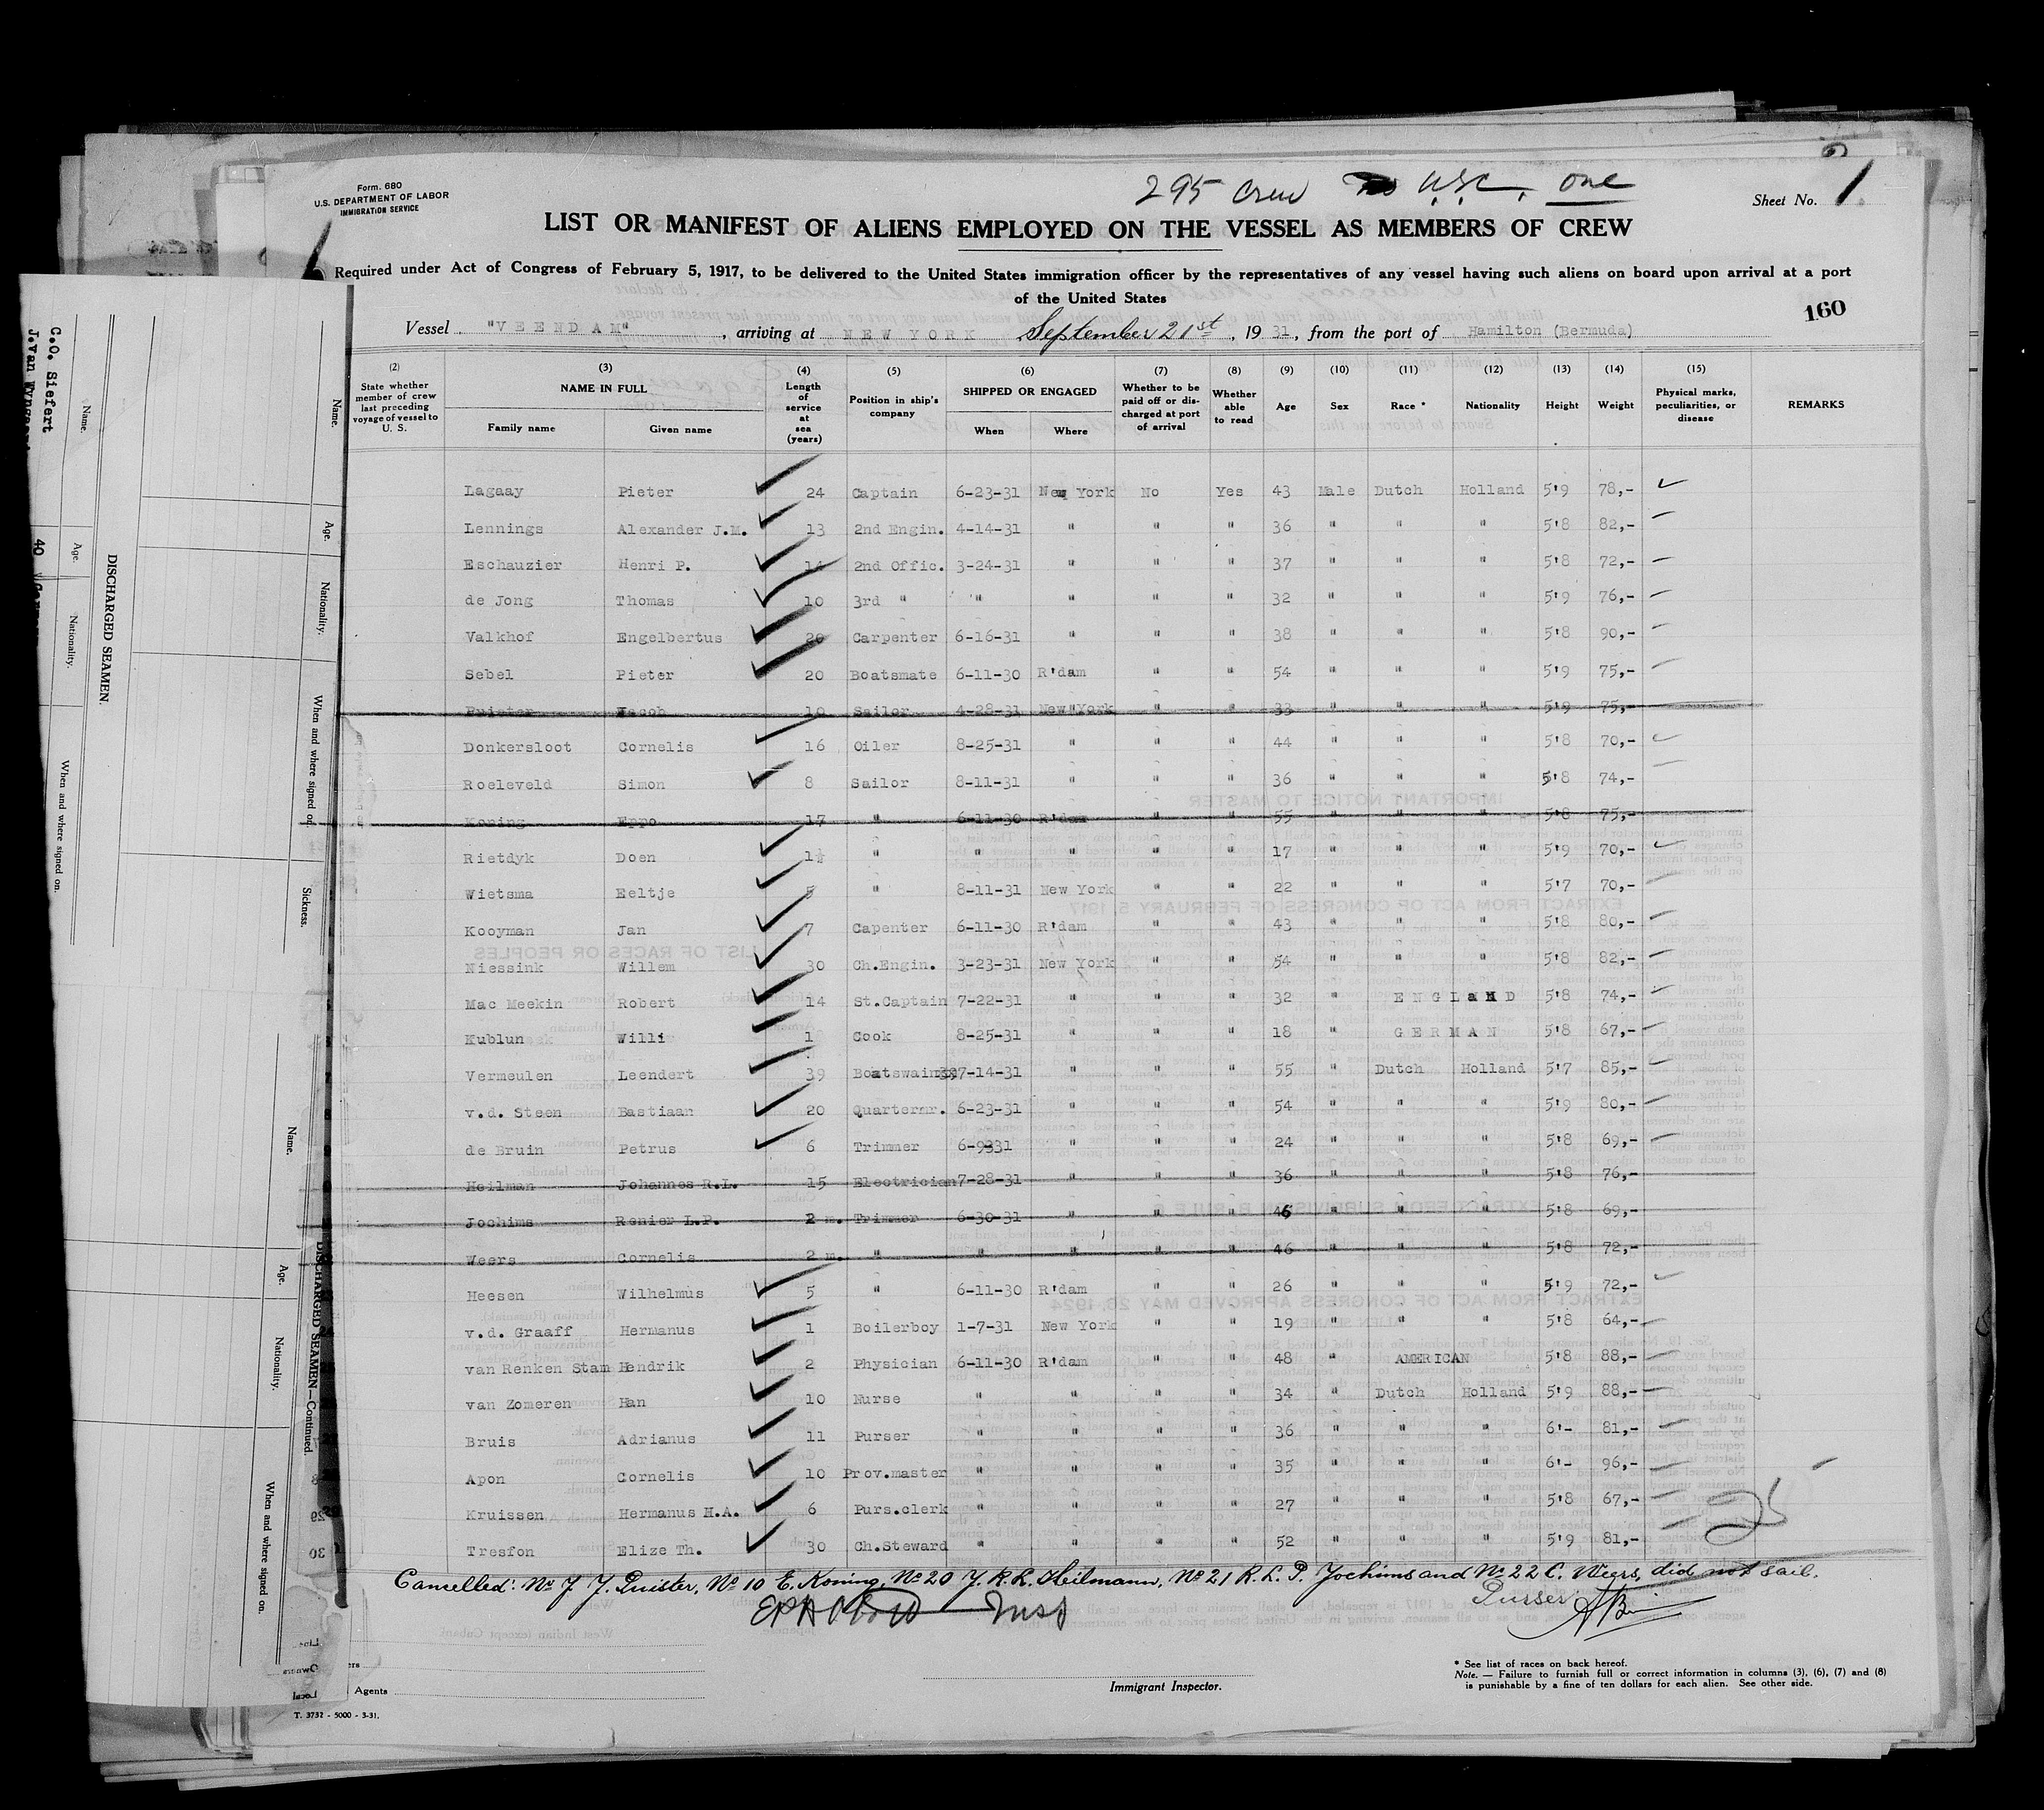 295 Crew U.S.C. one
Form. 680
U.S. DEPARTMENT OF LABOR
IMMIGRATION SERVICE
Sheet No. 1
LIST OR MANIFEST OF ALIENS EMPLOYED ON THE VESSEL AS MEMBERS OF CREW
Required under Act of Congress of February 5, 1917, to be delivered to the United States immigration officer by the representatives of any vessel having such aliens on board upon arrival at a port
of the United States
160
Vessel "VEENDAM", arriving at NEW YORK September 21st, 1931, from the port of Hamilton (Bermuda)
(2) State whether member of crew last preceding voyage of vessel to U. S. (3) NAME IN FULL Family name Given name (4) Length of service at sea (years) (5) Position in ship's company (6) SHIPPED OR ENGAGED When Where (7) Whether to be paid off or discharged at port of arrival (8) Whether able to read (9) Age (10) Sex (11) Race * (12) Nationality (13) Height (14) Weight (15) Physical marks, peculiarities, or disease REMARKS
Lagaay Pieter 24 Captain 6-23-31 New York No Yes 43 Male Dutch Holland 5'9 78,-
Lennings Alexander J.M. 13 2nd Engin. 4-14-31 " " " 36 " " " 5'8 82,-
Eschauzier Henri P. 14 2nd Offic. 3-24-31 " " " 37 " " " 5'8 72,-
de Jong Thomas 10 3rd " " " " " 32 " " " 5'9 76,-
Valkhof Engelbertus 20 Carpenter 6-16-31 " " " 38 " " " 5'8 90,-
Sebel Pieter 20 Boatsmate 6-11-30 R'dam " " 54 " " " 5'9 75,-
Puister Jacob 10 Sailor 4-28-31 New York " " 33 " " " 5'9 75,-
Donkersloot Cornelis 16 Oiler 8-25-31 " " " 44 " " " 5'8 70,-
Roeleveld Simon 8 Sailor 8-11-31 " " " 36 " " " 5'8 74,-
Koning Eppo 17 " 6-11-30 R'dam " " 55 " " " 5'8 75,-
Rietdyk Doen 1½ " " " " " 17 " " " 5'9 70,-
Wietsma Eeltje 5 " 8-11-31 New York " " 22 " " " 5'7 70,-
Kooyman Jan 7 Capenter 6-11-30 R'dam " " 43 " " " 5'8 80,-
Niessink Willem 30 Ch.Engin. 3-23-31 New York " " 54 " " " 5'8 82,-
Mac Meekin Robert 14 St.Captain 7-22-31 " " " 32 " ENGLAND 5'8 74,-
Kublun Willi 1 Cook 8-25-31 " " " 18 " GERMAN 5'8 67,-
Vermeulen Leendert 39 Boatswain 7-14-31 " " " 55 " Dutch Holland 5'7 85,-
v.d. Steen Bastiaan 20 Quartermr. 6-23-31 " " " 54 " " " 5'9 80,-
de Bruin Petrus 6 Trimmer 6-9331 " " " 24 " " " 5'8 69,-
Heilman Johannes R.L. 15 Electrician 7-28-31 " " " 36 " " " 5'8 76,-
Jochims Renier L.P. 2 m. Trimmer 6-30-31 " " " 46 " " " 5'8 69,-
Weers Cornelis 2 m. " " " " " 46 " " " 5'8 72,-
Heesen Wilhelmus 5 " 6-11-30 R'dam " " 26 " " " 5'9 72,-
v.d. Graaff Hermanus 1 Boilerboy 1-7-31 New York " " 19 " " " 5'8 64,-
van Renken Stam Hendrik 2 Physician 6-11-30 R'dam " " 48 " AMERICAN 5'8 88,-
van Zomeren Han 10 Nurse " " " " 34 " Dutch Holland 5'9 88,-
Bruis Adrianus 11 Purser " " " " 36 " " " 6'- 81,-
Apon Cornelis 10 Prov.master " " " " 35 " " " 6'- 96,-
Kruissen Hermanus H.A. 6 Purs.clerk " " " " 27 " " " 5'8 67,-
Tresfon Elize Th. 30 Ch.Steward " " " " 52 " " " 5'9 81,-
Cancelled: No 7 J. Puister, No 10 E. Koning, No 20 J. R. L. Heilmann, No 21 R. L. P. Jochims and No 22 C. Weers, did not sail.
Purser
Agents
Immigrant Inspector.
* See list of races on back hereof.
Note. — Failure to furnish full or correct information in columns (3), (6), (7) and (8)
is punishable by a fine of ten dollars for each alien. See other side.
T. 3732 - 5000 - 3-31.
C.O. Siefert
40
DISCHARGED SEAMEN.
Name. Age. Nationality. When and where signed on.
Name. Age. Nationality. When and where signed on. Sickness.
DISCHARGED SEAMEN—Continued.
Name. Age. Nationality. When and where signed on.
IMPORTANT NOTICE TO MASTER
EXTRACT FROM ACT OF CONGRESS OF FEBRUARY 5, 1917
LIST OF RACES OR PEOPLES
EXTRACT FROM ACT OF CONGRESS APPROVED MAY 26, 1924